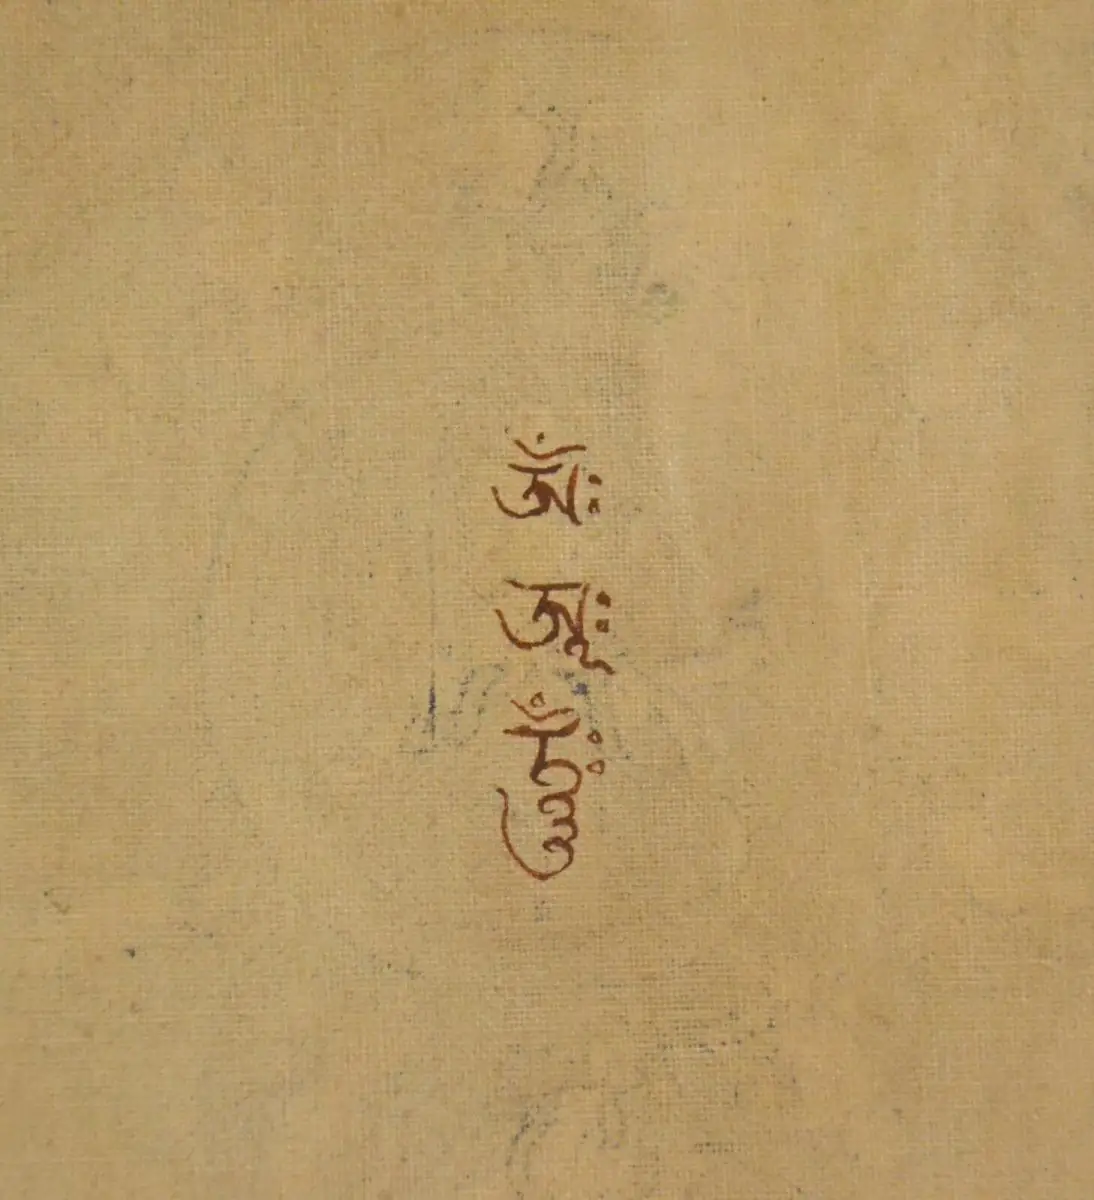 ཨོཾཿ
ཨཱཿ
ཧཱུྃཿ